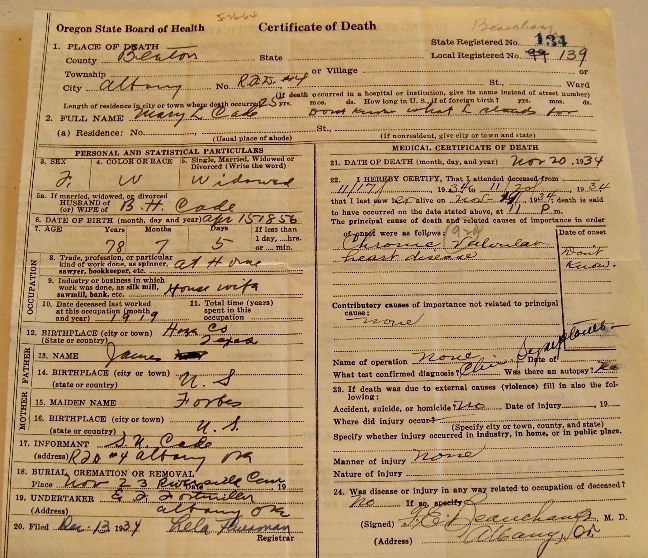 57664
Oregon State Board of Health Certificate of Death
1. PLACE OF DEATH State Registered No. 134
County Benton State Local Registered No. 99 139
Township or Village or
City Albany No. R2D. #4 St., Ward
(If death occurred in a hospital or institution, give its name instead of street number)
Length of residence in city or town where death occurred 25 yrs. mos. ds. How long in U. S., if of foreign birth? yrs. mos. ds.
2. FULL NAME Mary L Cade Dont know what L stands for
(a) Residence: No. St.
(Usual place of abode) (If nonresident, give city or town and state)
PERSONAL AND STATISTICAL PARTICULARS
3. SEX 4. COLOR OR RACE 5. Single, Married, Widowed or Divorced (Write the word)
F. W Widowed
5a. If married, widowed, or divorced
HUSBAND of
(or) WIFE of B. H. Cade
6. DATE OF BIRTH (month, day and year) Apr 15 1856
7. AGE Years Months Days If less than 1 day, hrs. or min.
78 7 5
OCCUPATION
8. Trade, profession, or particular kind of work done, as spinner, sawyer, bookkeeper, etc. At Home
9. Industry or business in which work was done, as silk mill, sawmill, bank, etc. House wife
10. Date deceased last worked at this occupation (month and year) 1919
11. Total time (years) spent in this occupation
12. BIRTHPLACE (city or town) Co
(State or Country) Texas
FATHER
13. NAME James
14. BIRTHPLACE (city or town)
(state or country) U. S
MOTHER
15. MAIDEN NAME Forbes
16. BIRTHPLACE (city or town)
(state or country) U. S.
17. INFORMANT S. N. Cade
(Address) R2D #4 Albany Ore
18. BURIAL CREMATION OR REMOVAL
Place Nov 23 Riverside Cem Date 19
19. UNDERTAKER
(Address) Albany Ore
20. Filed Dec. 13 1934 Lela
Registrar
MEDICAL CERTIFICATE OF DEATH
21. DATE OF DEATH (month, day, and year) Nov 20, 1934
22. I HEREBY CERTIFY, That I attended deceased from
11/17/ 1934 to 11/20/ 1934
that I last saw her alive on Nov 19 1934. death is said
to have occurred on the date stated above, at 11 P m.
The principal cause of death and related causes of importance in order
of onset were as follows: Date of onset
Chronic Valvular Don't
heart disease Know.
Contributory causes of importance not related to principal
cause:
none
Name of operation None Date of
What test confirmed diagnosis? Clin. Symptoms Was there an autopsy? No
23. If death was due to external causes (violence) fill in also the following:
Accident, suicide, or homicide No Date of injury , 19
Where did injury occur?
(Specify city or town, county, and state)
Specify whether injury occurred in industry, in home, or in public place.
Manner of injury None
Nature of injury
24. Was disease or injury in any way related to occupation of deceased?
No If so, specify
(Signed) Beauchamp M. D.
(Address) Albany, Or